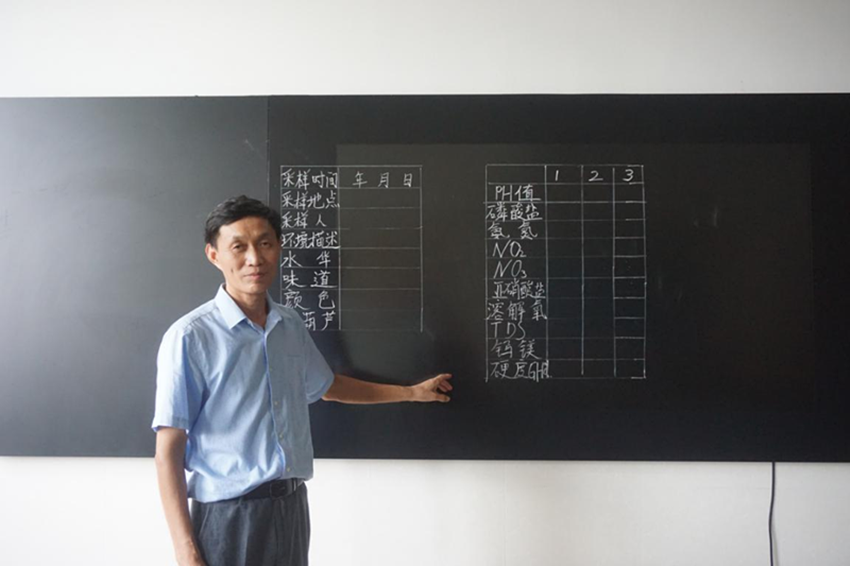 采样时间 年 月 日
采样地点
采样人
环境描述
水华
味道
颜色
葫芦
1 2 3
PH值
磷酸盐
氨氮
NO₂
NO₃
亚硝酸盐
溶解氧
TDS
钙镁
硬度GH